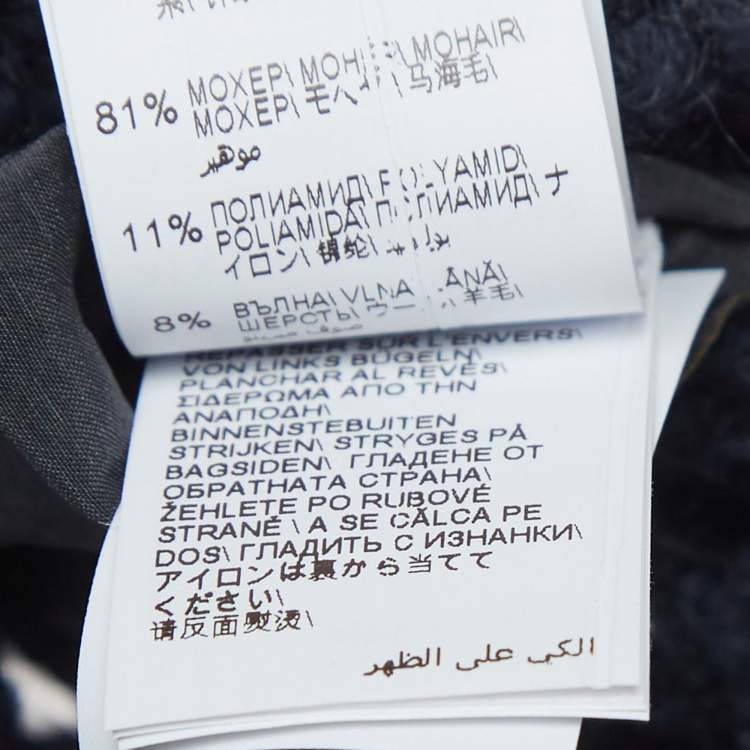 81% МОХЕР\ MOHER\ MOHAIR\
МОХЕР\ モヘア\ 马海毛\
موهير
11% ПОЛИАМИД\ POLYAMID\
POLIAMIDĂ\ ПОЛИАМИД\ ナ
イロン\ 锦纶\
8% ВЪЛНА\ VLNA LÂNĂ\
ШЕРСТЬ\ ウール\ 羊毛\
REPASSER SUR L'ENVERS\
VON LINKS BÜGELN\
PLANCHAR AL REVÉS\
ΣΙΔΕΡΩΜΑ ΑΠΟ ΤΗΝ
ΑΝΑΠΟΔΗ\
BINNENSTEBUITEN
STRIJKEN\ STRYGES PÅ
BAGSIDEN\ ГЛАДЕНЕ ОТ
ОБРАТНАТА СТРАНА\
ŽEHLETE PO RUBOVÉ
STRANĚ \ A SE CĂLCA PE
DOS\ ГЛАДИТЬ С ИЗНАНКИ\
アイロンは裏から当てて
ください\
请反面熨烫\
الكي على الظهر